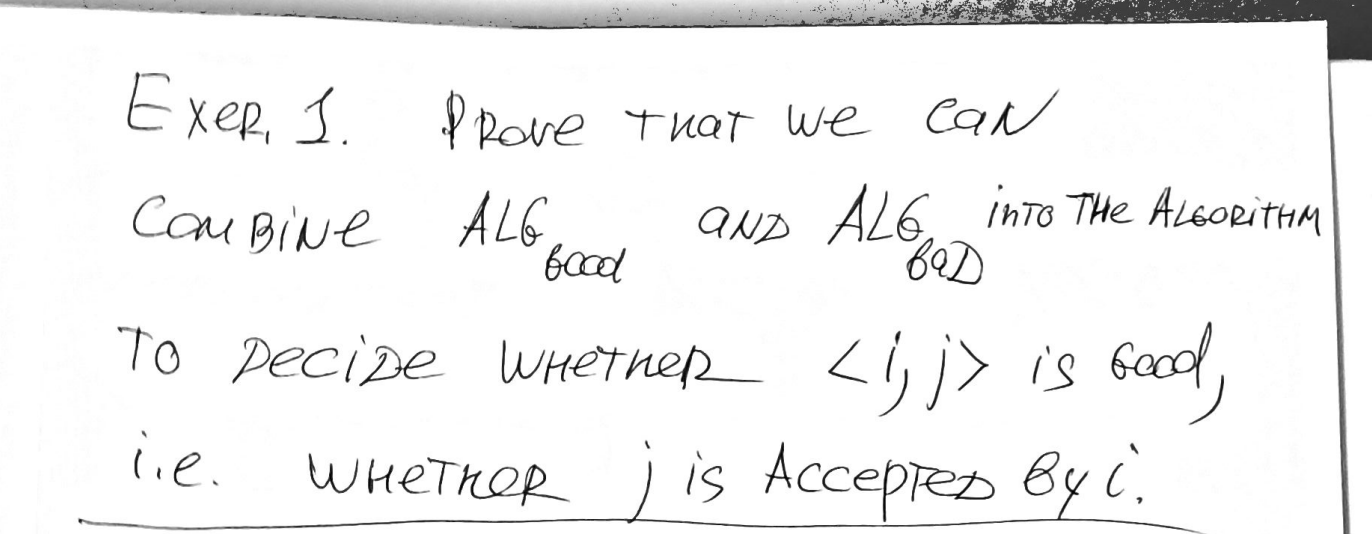 Exer. 1. Prove that we can
combine ALG good and ALG bad into the algorithm
to decide whether <i, j> is good,
i.e. whether j is accepted by i.